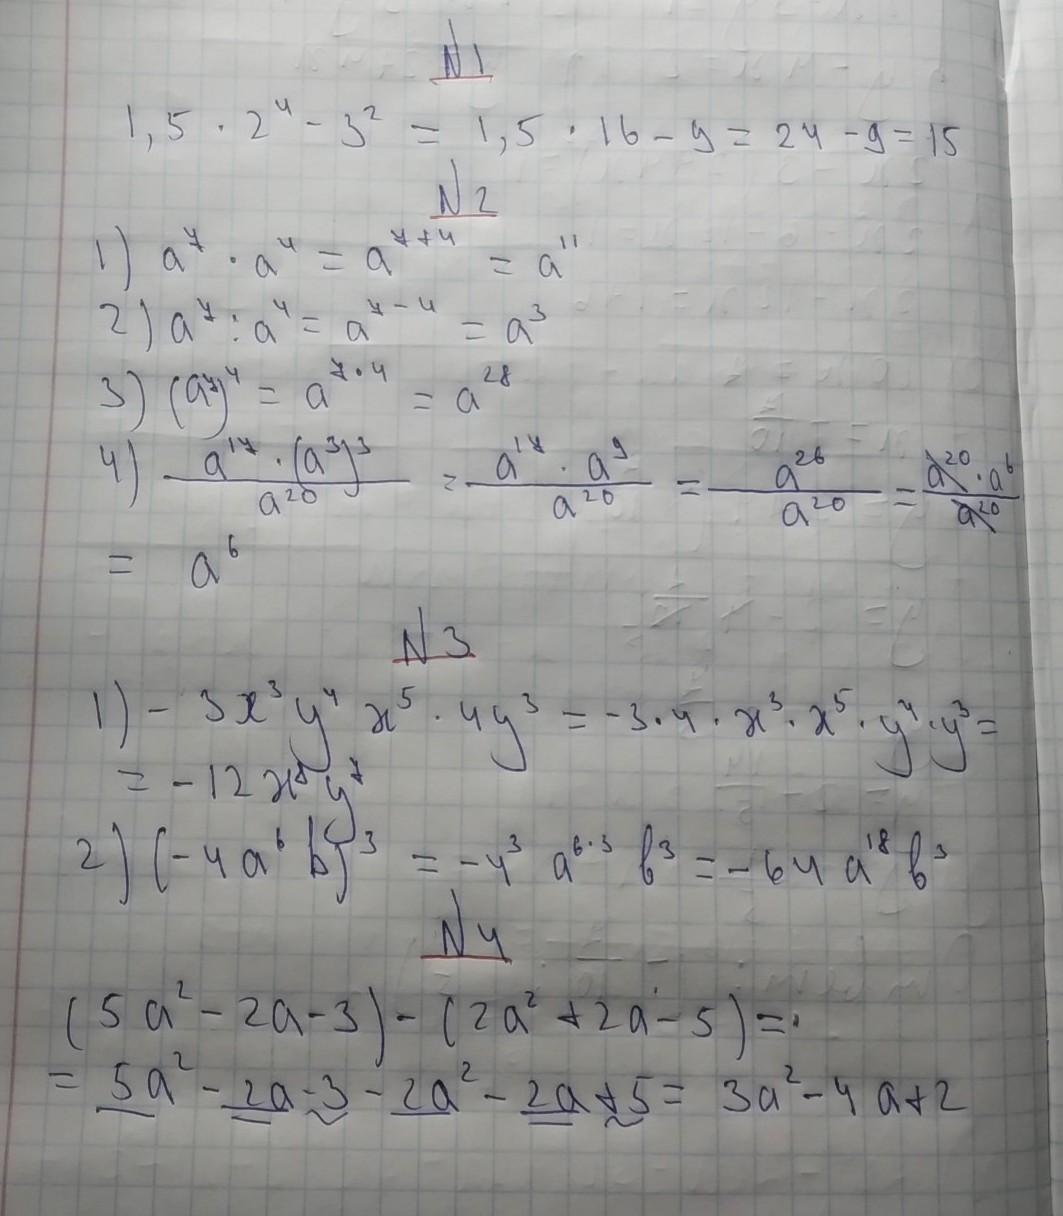 N1
1,5 · 2⁴ - 3² = 1,5 · 16 - 9 = 24 - 9 = 15
N2
1) a⁷ · a⁴ = a⁷⁺⁴ = a¹¹
2) a⁷ : a⁴ = a⁷⁻⁴ = a³
3) (a⁷)⁴ = a⁷˙⁴ = a²⁸
4) a¹⁷ · (a³)³ / a²⁰ = a¹⁷ · a⁹ / a²⁰ = a²⁶ / a²⁰ = a²⁰ · a⁶ / a²⁰
= a⁶
N3
1) - 3x³y⁴ x⁵ · 4y³ = -3 · 4 · x³ · x⁵ · y⁴ · y³ =
= -12 x⁸ y⁷
2) (-4a⁶ b)³ = -4³ a⁶˙³ b³ = -64 a¹⁸ b³
N4
(5a² - 2a - 3) - (2a² + 2a - 5) =
= 5a² - 2a - 3 - 2a² - 2a + 5 = 3a² - 4a + 2